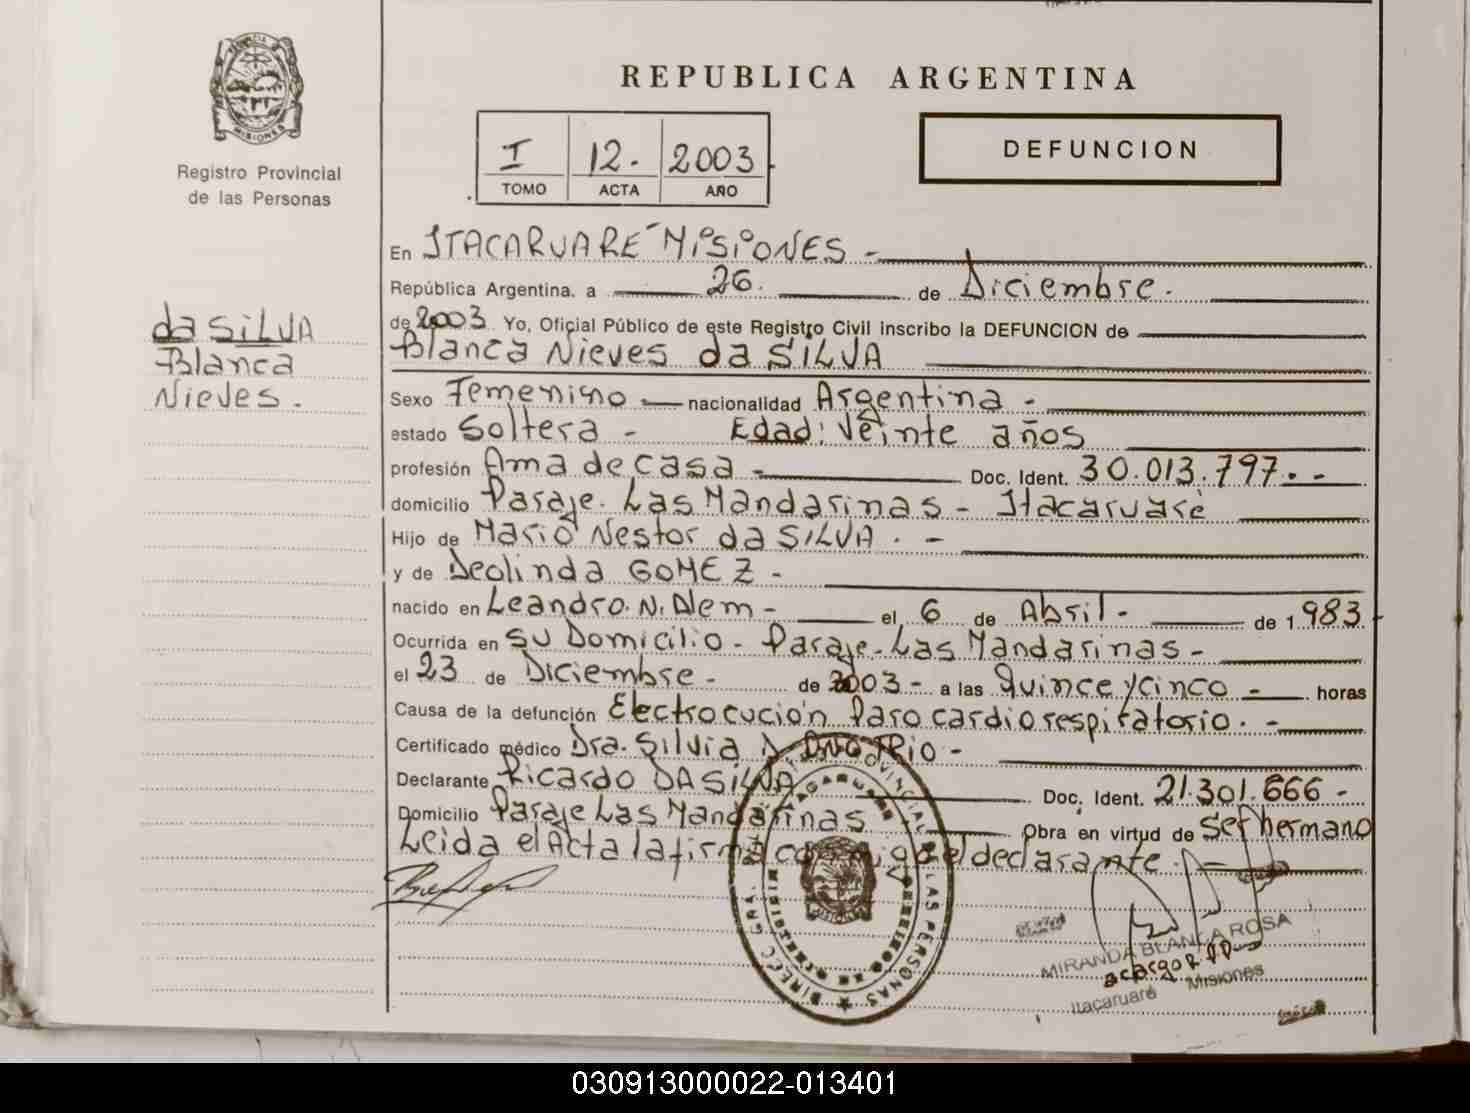 REPUBLICA ARGENTINA
MISIONES
Registro Provincial
de las Personas
I 12. 2003
TOMO ACTA AÑO
DEFUNCION
da SILVA
Blanca
Nieves.
En ITACARUARE MISIONES -
República Argentina, a 26. de Diciembre.
de 2003 Yo, Oficial Público de este Registro Civil inscribo la DEFUNCION de
Blanca Nieves da SILVA
Sexo Femenino nacionalidad Argentina -
estado Soltera - Edad: Veinte años
profesión Ama de casa - Doc. Ident. 30.013.797.-
domicilio Paraje. Las Mandarinas - Itacaruaré
Hijo de Mario Nestor da SILVA. -
y de Deolinda GOMEZ -
nacido en Leandro. N. Alem - el 6 de Abril - de 1.983
Ocurrida en Su Domicilio - Paraje. Las Mandarinas -
el 23 de Diciembre - de 2003 - a las Quince y cinco - horas
Causa de la defunción Electrocución Paro cardio respiratorio. -
Certificado médico Dra. Silvia
Declarante Ricardo DA SILVA Doc. Ident. 21.301.666 -
Domicilio Paraje Las Mandarinas Obra en virtud de Ser hermano
Leida el Acta la firma conmigo el declarante.
MIRANDA BLANCA ROSA
a cargo R.P.
Itacaruaré Misiones
030913000022-013401